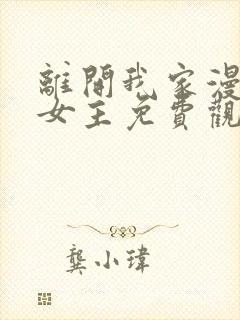 離開我家漫
女主免費觀
龔小瑋